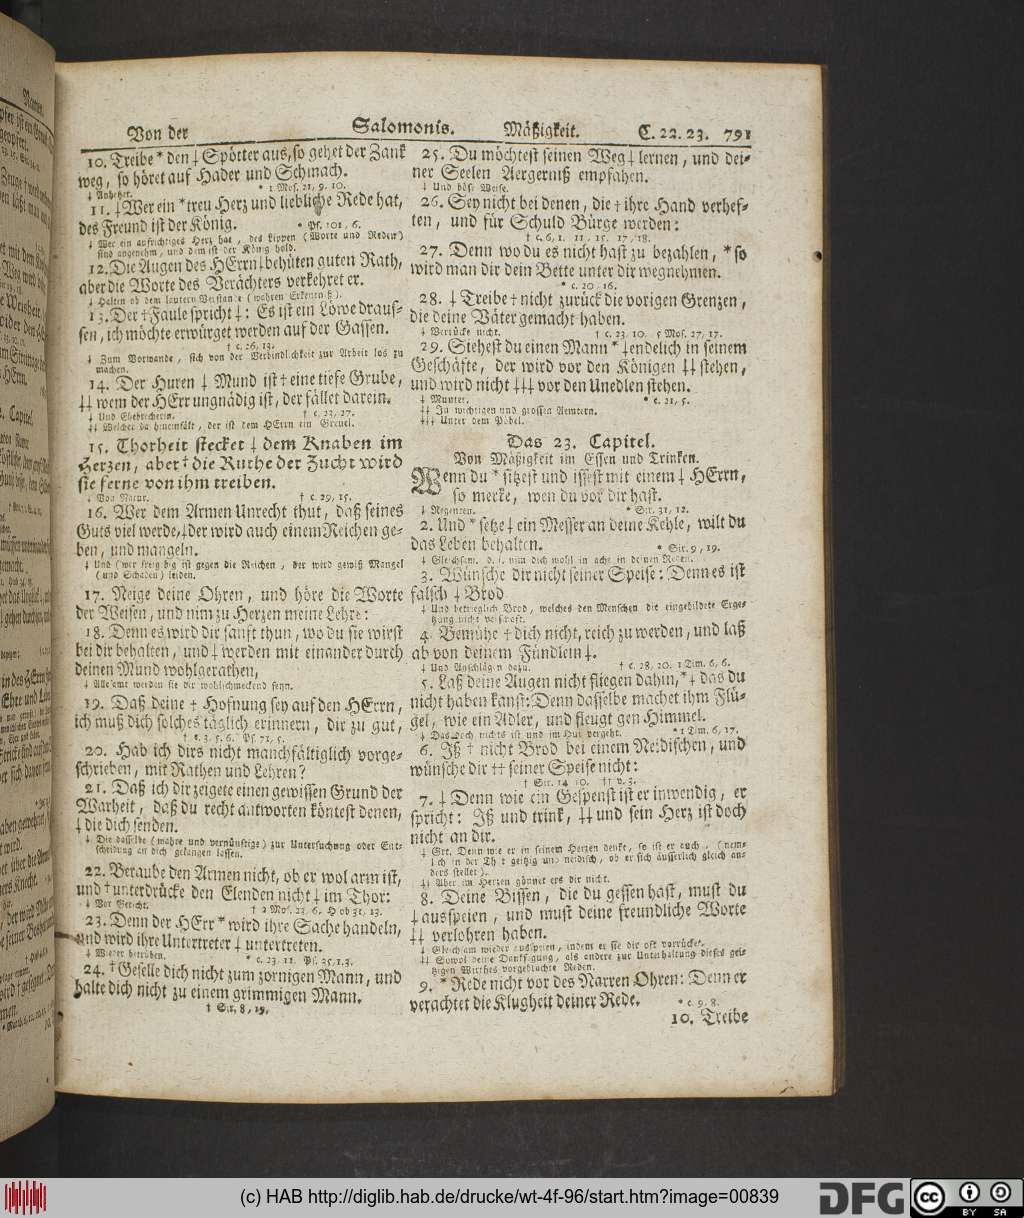 Von der Salomonis. Mäßigkeit. C. 22. 23. 791
10. Treibe * den ⸸ Spötter aus, so gehet der Zank
weg, so höret auf Hader und Schmach.
⸸ Anhetzer. * 1 Mos. 21, 9. 10.
11. ⸸ Wer ein * treu Herz und liebliche Rede hat,
des Freund ist der König. * Ps. 101, 6.
⸸ Wer ein aufrichtiges Herz hat, des Lippen (Worte und Reden)
sind angenehm, und dem ist der König hold.
12. Die Augen des HErrn ⸸ behüten guten Rath,
aber die Worte des Verächters verkehret er.
⸸ Halten ob dem lautern Verstande (wahren Erkentniß).
13. Der † Faule spricht ⸸: Es ist ein Löwe draus-
sen, ich möchte erwürget werden auf der Gassen.
† c. 26, 13.
⸸ Zum Vorwande, sich von der Verbindlichkeit zur Arbeit los zu
machen.
14. Der Huren ⸸ Mund ist † eine tiefe Grube,
⸸⸸ wem der HErr ungnädig ist, der fället darein.
⸸ Und Ehebrecherin. † c. 23, 27.
⸸⸸ Welcher da hineinfält, der ist dem HErrn ein Greuel.
15. Thorheit stecket ⸸ dem Knaben im
Herzen, aber † die Ruthe der Zucht wird
sie ferne von ihm treiben.
⸸ Von Natur. † c. 29, 15.
16. Wer dem Armen Unrecht thut, daß seines
Guts viel werde, ⸸ der wird auch einem Reichen ge-
ben, und mangeln.
⸸ Und (wer freigebig ist gegen die Reichen, der wird gewiß Mangel
(und Schaden) leiden.
17. Neige deine Ohren, und höre die Worte
der Weisen, und nim zu Herzen meine Lehre:
18. Denn es wird dir sanft thun, wo du sie wirst
bei dir behalten, und ⸸ werden mit einander durch
deinen Mund wohlgerathen,
⸸ Allesamt werden sie dir wohlschmeckend seyn.
19. Daß deine † Hofnung sey auf den HErrn,
ich muß dich solches täglich erinnern, dir zu gut,
† c. 3, 5. 6. Ps. 71, 5.
20. Hab ich dirs nicht manchfältiglich vorge-
schrieben, mit Rathen und Lehren?
21. Daß ich dir zeigete einen gewissen Grund der
Warheit, daß du recht antworten köntest denen,
⸸ die dich senden.
⸸ Die dasselbe (wahre und vernünftige) zur Untersuchung oder Ent-
scheidung an dich gelangen lassen.
22. Beraube den Armen nicht, ob er wol arm ist,
und † unterdrücke den Elenden nicht ⸸ im Thor:
⸸ Vor Gericht. † 2 Mos. 23, 6. Hiob 31, 13.
23. Denn der HErr * wird ihre Sache handeln,
und wird ihre Untertreter ⸸ untertreten.
⸸ Wieder betrüben. * c. 23, 11. Ps. 35, 1. 3.
24. † Geselle dich nicht zum zornigen Mann, und
halte dich nicht zu einem grimmigen Mann.
† Sir. 8, 19.
25. Du möchtest seinen Weg ⸸ lernen, und dei-
ner Seelen Aergerniß empfahen.
⸸ Und böse Weise.
26. Sey nicht bei denen, die † ihre Hand verhef-
ten, und für Schuld Bürge werden:
† c. 6, 1. 11, 15. 17, 18.
27. Denn wo du es nicht hast zu bezahlen, * so
wird man dir dein Bette unter dir wegnehmen.
* c. 20, 16.
28. ⸸ Treibe † nicht zurück die vorigen Grenzen,
die deine Väter gemacht haben.
⸸ Verrücke nicht. † c. 23, 10. 5 Mos. 27, 17.
29. Siehest du einen Mann * ⸸ endelich in seinem
Geschäfte, der wird vor den Königen ⸸⸸ stehen,
und wird nicht ⸸⸸⸸ vor den Unedlen stehen.
⸸ Munter. * c. 21, 5.
⸸⸸ In wichtigen und grossen Aemtern.
⸸⸸⸸ Unter dem Pöbel.
Das 23. Capitel.
Von Mäßigkeit im Essen und Trinken.
Wenn du * sitzest und issest mit einem ⸸ HErrn,
so merke, wen du vor dir hast.
⸸ Regenten. * Sir. 31, 12.
2. Und * setze ⸸ ein Messer an deine Kehle, wilt du
das Leben behalten. * Sir. 9, 19.
⸸ Gleichsam, d. i. nim dich wohl in acht in deinen Reden.
3. Wünsche dir nicht seiner Speise: Denn es ist
falsch ⸸ Brod.
⸸ Und betrieglich Brod, welches den Menschen die eingebildete Erge-
tzung nicht verschaft.
4. Bemühe † dich nicht, reich zu werden, und laß
ab von deinem Fündlein ⸸.
⸸ Und Anschlägen dazu. † c. 28, 20. 1 Tim. 6, 6.
5. Laß deine Augen nicht fliegen dahin, * ⸸ das du
nicht haben kanst: Denn dasselbe machet ihm Flü-
gel, wie ein Adler, und fleugt gen Himmel.
⸸ Das doch nichts ist und im Hui vergeht. * 1 Tim. 6, 17.
6. Iß † nicht Brod bei einem Neidischen, und
wünsche dir †† seiner Speise nicht:
† Sir. 14, 10. †† v. 3.
7. ⸸ Denn wie ein Gespenst ist er inwendig, er
spricht: Iß und trink, ⸸⸸ und sein Herz ist doch
nicht an dir.
⸸ Grt. Denn wie er in seinem Herzen denkt, so ist er auch, (nem-
lich in der That geitzig und neidisch, ob er sich äusserlich gleich an-
ders stellet).
⸸⸸ Aber im Herzen gönnet ers dir nicht.
8. Deine Bissen, die du gessen hast, must du
⸸ ausspeien, und must deine freundliche Worte
⸸⸸ verlohren haben.
⸸ Gleichsam wieder ausspeien, indem er sie dir oft vorrücket.
⸸⸸ Sowol deine Danksagung, als andere zur Unterhaltung dieses gei-
tzigen Wirthes vorgebrachte Reden.
9. * Rede nicht vor des Narren Ohren: Denn er
verachtet die Klugheit deiner Rede. * c. 9, 8.
10. Treibe
(c) HAB http://diglib.hab.de/drucke/wt-4f-96/start.htm?image=00839
DFG
cc BY SA